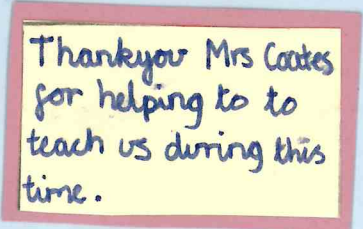 Thankyou Mrs Coates
for helping to to
teach us during this
time.